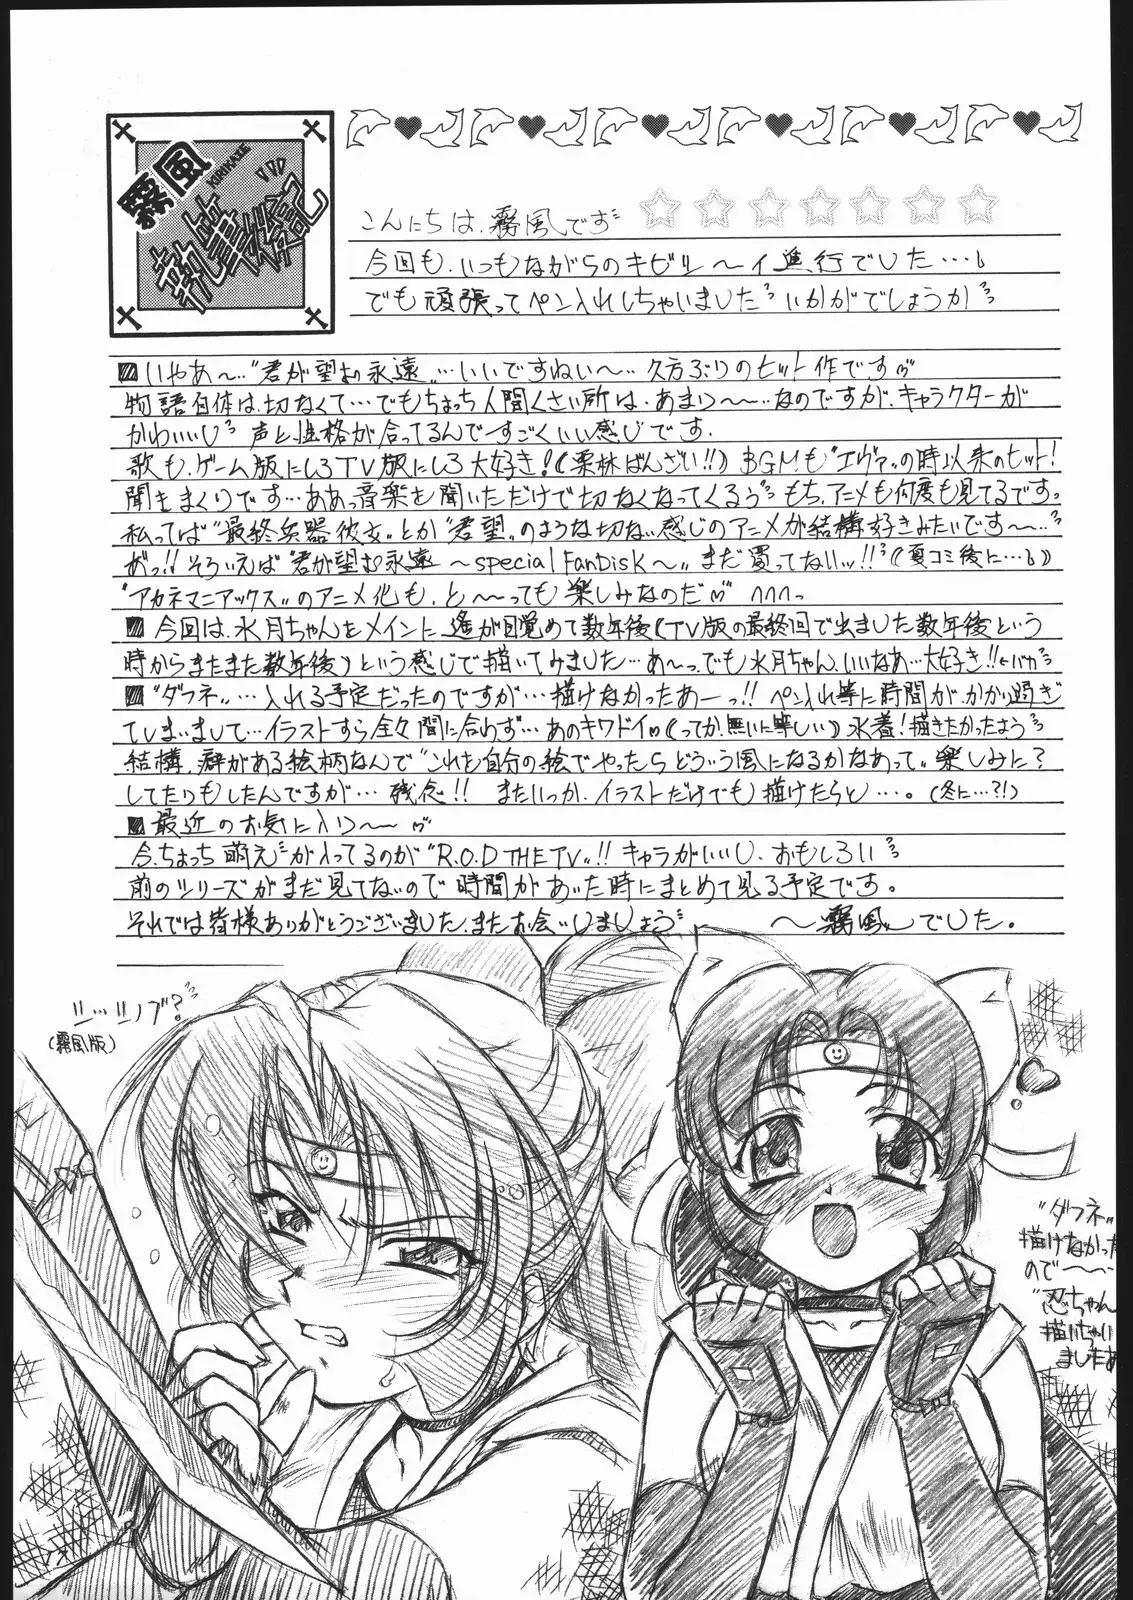 霧風
KIRIKAZE
執筆後記
こんにちは、霧風です
今回も、いつもながらのキビシ～イ進行でした…
でも頑張ってペン入れしちゃいました いかがでしょうか
■いやあ～、"君が望む永遠"…いいですねい～…久方ぶりのヒット作です
物語自体は、切なくて…でもちょっち人間くさい所は、あまり～～…なのですが、キャラクターが
かわいいし 声と、性格が合ってるんですごくいい感じです。
歌も、ゲーム版にしろTV版にしろ大好き!(栗林ばんざい!!) BGMも"エヴァ"の時以来のヒット!
聞きまくりです…ああっ音楽を聞いただけで切なくなってくるぅ もち、アニメも何度も見てるです。
私ってば"最終兵器彼女"とか"君望"のような切ない感じのアニメが結構好きみたいです～～…
あっ!! そういえば"君が望む永遠～special FanDisk～"まだ買ってないッ!! (夏コミ後に…)
"アカネマニアックス"のアニメ化も、と～～っても楽しみなのだ ∩∩∩っ
■今回は、水月ちゃんをメインに遙が目覚めて数年後(TV版の最終回で出ました数年後という
時からまたまた数年後)という感じで描いてみました…あ～っ、でも水月ちゃん、いいなあ…大好き!!←バカ
■"ダフネ"…入れる予定だったのですが…描けなかったあーっ!! ペン入れ等に時間が、かかり過ぎ
ていまいまして…イラストすら全々間に合わず…あのキワドイ(ってか、無いに等しい)水着!描きたかったよう
結構、癖がある絵柄なんで"これを自分の絵でやったらどういう風になるかなあって"楽しみに?
してたりもしたんですが… 残念!! またいつか、イラストだけでも描けたらと…。(冬に…?!)
■最近のお気に入り～～
今、ちょっち萌えが入ってるのが"R.O.D THE TV"!! キャラがいいし、おもしろい
前のシリーズがまだ見てないので時間があいた時にまとめて見る予定です。
それでは皆様ありがとうございました、またお会いしましょう
～霧風 でした。
シ…シノブ?
(霧風版)
"ダフネ"
描けなかった
ので～～…
"忍ちゃん
描いちゃい
ましたあ